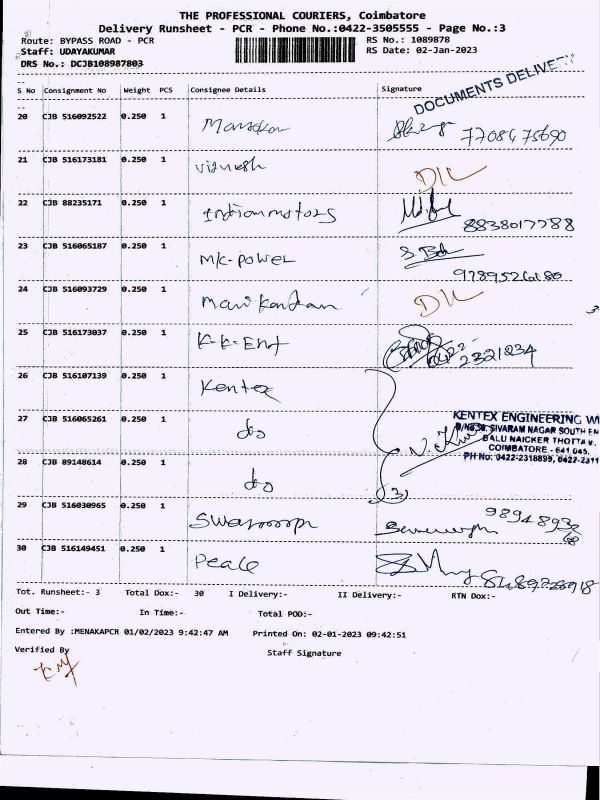 THE PROFESSIONAL COURIERS, Coimbatore
Delivery Runsheet - PCR - Phone No.:0422-3505555 - Page No.:3
Route: BYPASS ROAD - PCR
RS No.: 1089878
Staff: UDAYAKUMAR
RS Date: 02-Jan-2023
DRS No.: DCJB108987803
DOCUMENTS DELIVE
S No Consignment No Weight PCS Consignee Details Signature
20 CJB 516092522 0.250 1
21 CJB 516173181 0.250 1 vignesh
22 CJB 88235171 0.250 1 Indian motors 8838017788
23 CJB 516065187 0.250 1 M/C-power 9789526180
24 CJB 516093729 0.250 1 Manikandan
25 CJB 516173037 0.250 1 K-K-Ent 0422-2321234
26 CJB 516107139 0.250 1 Kentex
27 CJB 516065261 0.250 1 do
28 CJB 89148614 0.250 1 do
KENTEX ENGINEERING W
SIVARAM NAGAR SOUTH EN
BALU NAICKER THOTTA
COIMBATORE - 641 045.
PH No: 0422-2318899, 0422-2311
29 CJB 516030965 0.250 1
30 CJB 516149451 0.250 1
Tot. Runsheet:- 3 Total Dox:- 30 I Delivery:- II Delivery:- RTN Dox:-
Out Time:- In Time:- Total POD:-
Entered By :MENAKAPCR 01/02/2023 9:42:47 AM Printed On: 02-01-2023 09:42:51
Verified By Staff Signature